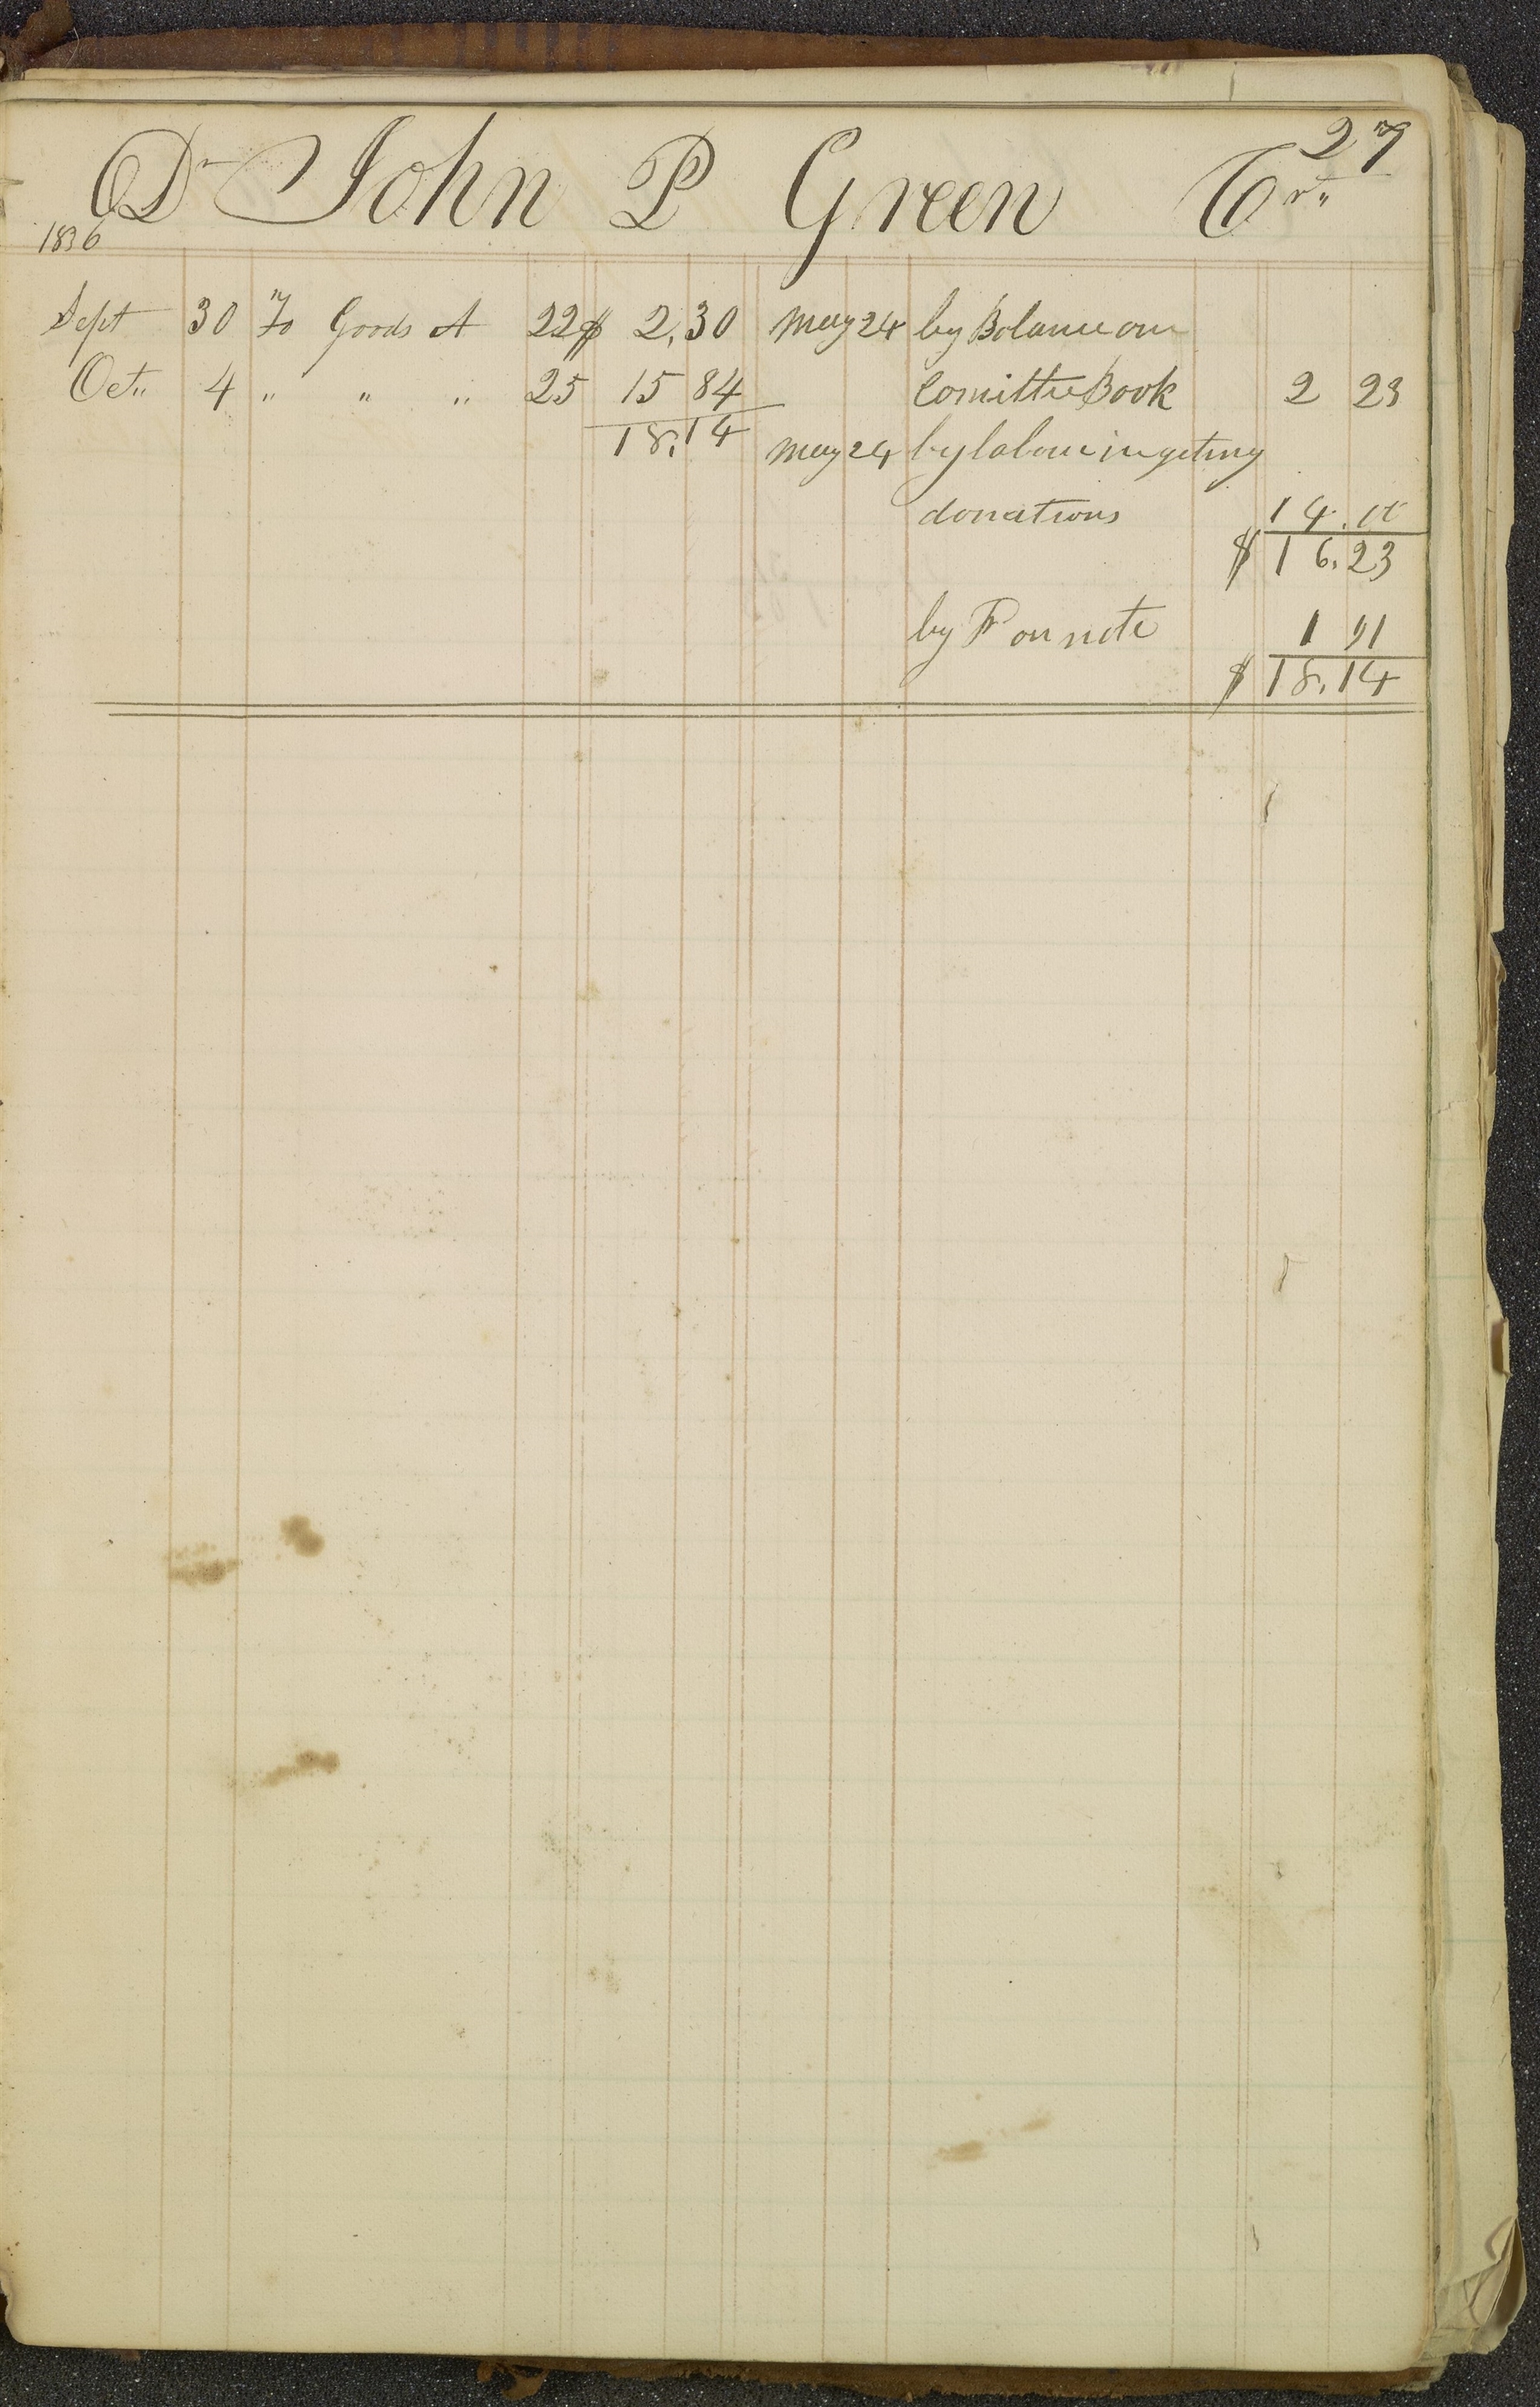 27
Dr John P Green Cr"
1836
Sept 30 To Goods A 22 $ 2,30
Oct" 4 " " " 25 15 84
18,14
May 24 by Balance on
Comittee Book 2 23
May 24 by labour in geting
donations 14.00
$ 16.23
by on note 1 91
$ 18.14